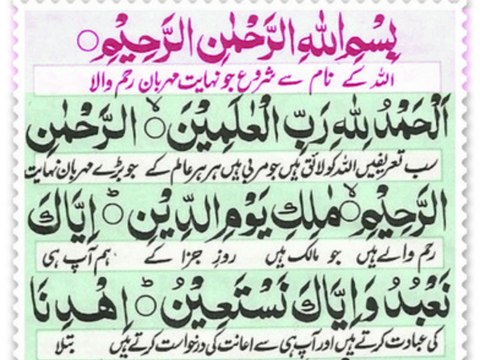 بِسْمِ اللهِ الرَّحْمٰنِ الرَّحِيْمِ ○
اللہ کے نام سے شروع جو نہایت مہربان رحم والا
اَلْحَمْدُ لِلّٰهِ رَبِّ الْعٰلَمِيْنَ ۙ الرَّحْمٰنِ
سب تعریفیں اللہ کو لائق ہیں جو مربی ہیں ہر ہر عالم کے جو بڑے مہربان نہایت
الرَّحِيْمِ ۙ مٰلِكِ يَوْمِ الدِّيْنِ ؕ اِيَّاكَ
رحم والے ہیں جو مالک ہیں روز جزا کے ہم آپ ہی
نَعْبُدُ وَاِيَّاكَ نَسْتَعِيْنُ ؕ اِهْدِنَا
کی عبادت کرتے ہیں اور آپ ہی سے اعانت کی درخواست کرتے ہیں بتلا